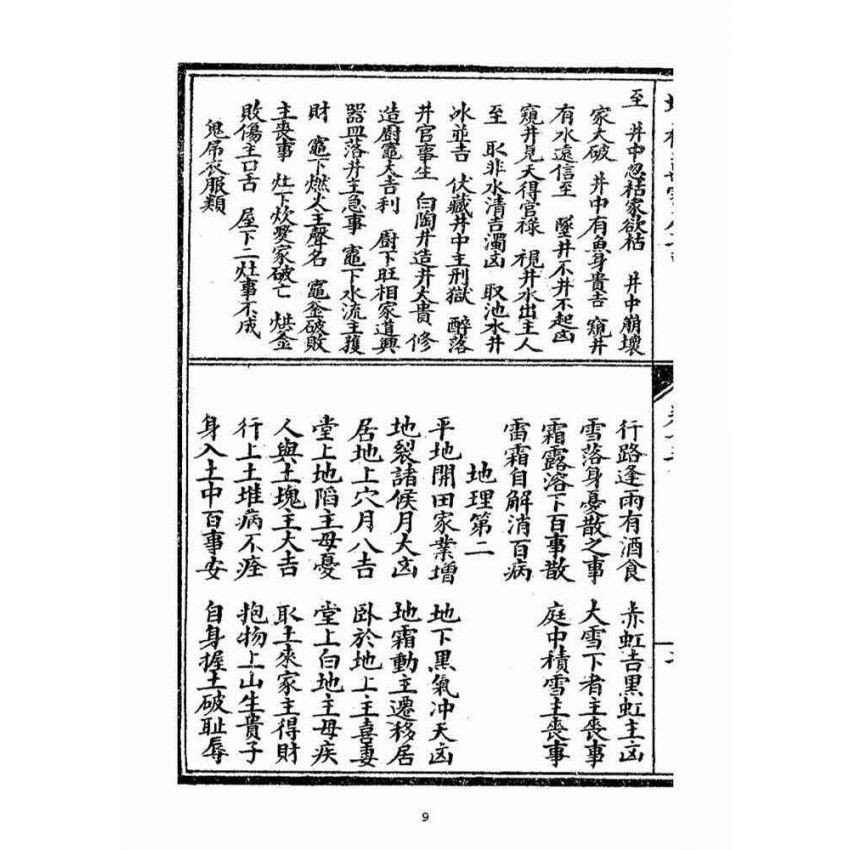 至　井中忽枯家欲枯　井中崩壞
家大破　井中有魚身貴吉　窺井
有水遠信至　墜井不井不起凶
窺井見天得官祿　視井水出主人
至　取非水清吉濁凶　取池水井
冰並吉　伏藏井中主刑獄　醉落
井官事生　白陶井造井大貴　修
造廚竈大吉利　廚下旺相家道興
器皿落井主急事　竈下水流主獲
財　竈下燃火主聲名　竈釜破敗
主喪事　灶下炊爨家破亡　烘金
敗傷主口舌　屋下二灶事不成
鬼吊衣服類
行路逢雨有酒食　赤虹吉黑虹主凶
雪落身憂散之事　大雪下者主喪事
霜露溶下百事散　庭中積雪主喪事
雷霜自解消百病
地理第二
平地開田家業增　地下黑氣冲天凶
地裂諸候月大凶　地霜動主遷移居
居地上穴月八吉　卧於地上主喜妻
堂上地陷主母憂　堂上白地主母疾
人與土塊主大吉　取土來家主得財
行上土堆病不痊　抱物上山生貴子
身入土中百事安　自身握土破耻辱
9